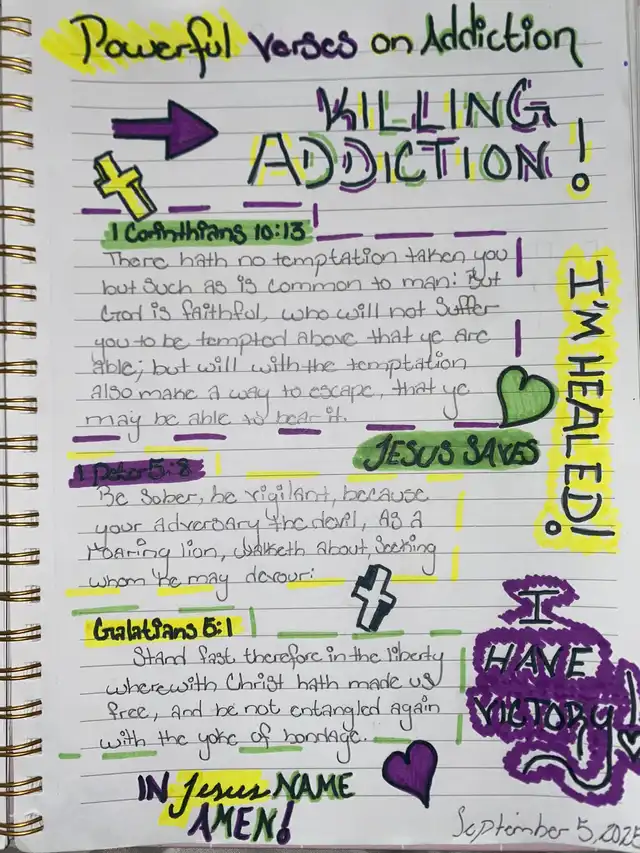 Powerful Verses on Addiction
KILLING
ADDICTION!
1 Corinthians 10:13
There hath no temptation taken you
but such as is common to man: But
God is faithful, who will not suffer
you to be tempted above that ye are
able; but will with the temptation
also make a way to escape, that ye
may be able to bear it.
I'M HEALED!
JESUS SAVES
1 Peter 5:8
Be sober, be vigilant, because
your adversary the devil, As a
roaring lion, walketh about, seeking
whom he may devour:
Galatians 5:1
Stand fast therefore in the liberty
wherewith Christ hath made us
free, and be not entangled again
with the yoke of bondage.
I
HAVE
VICTORY!
IN Jesus NAME
AMEN!
September 5, 2025